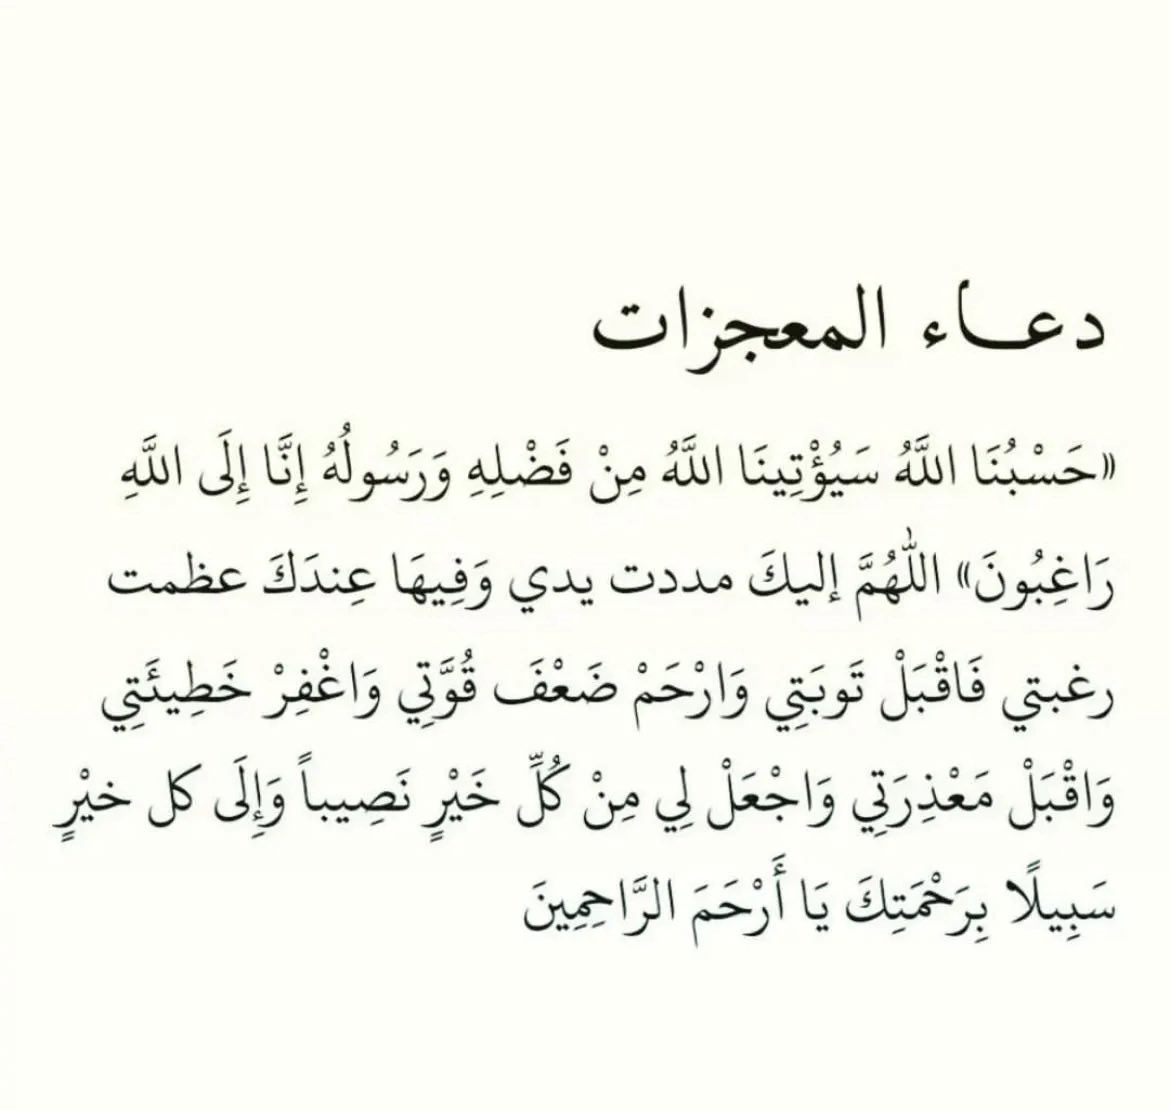 دعـــاء المعجزات
«حَسْبُنَا اللَّهُ سَيُؤْتِينَا اللَّهُ مِنْ فَضْلِهِ وَرَسُولُهُ إِنَّا إِلَى اللَّهِ
رَاغِبُونَ» اللّٰهُمَّ إليكَ مددت يدي وَفِيهَا عِندَكَ عظمت
رغبتي فَاقْبَلْ تَوبَتِي وَارْحَمْ ضَعْفَ قُوَّتِي وَاغْفِرْ خَطِيئَتِي
وَاقْبَلْ مَعْذِرَتِي وَاجْعَلْ لِي مِنْ كُلِّ خَيْرٍ نَصِيباً وَإِلَى كل خيْرٍ
سَبِيلًا بِرَحْمَتِكَ يَا أَرْحَمَ الرَّاحِمِينَ